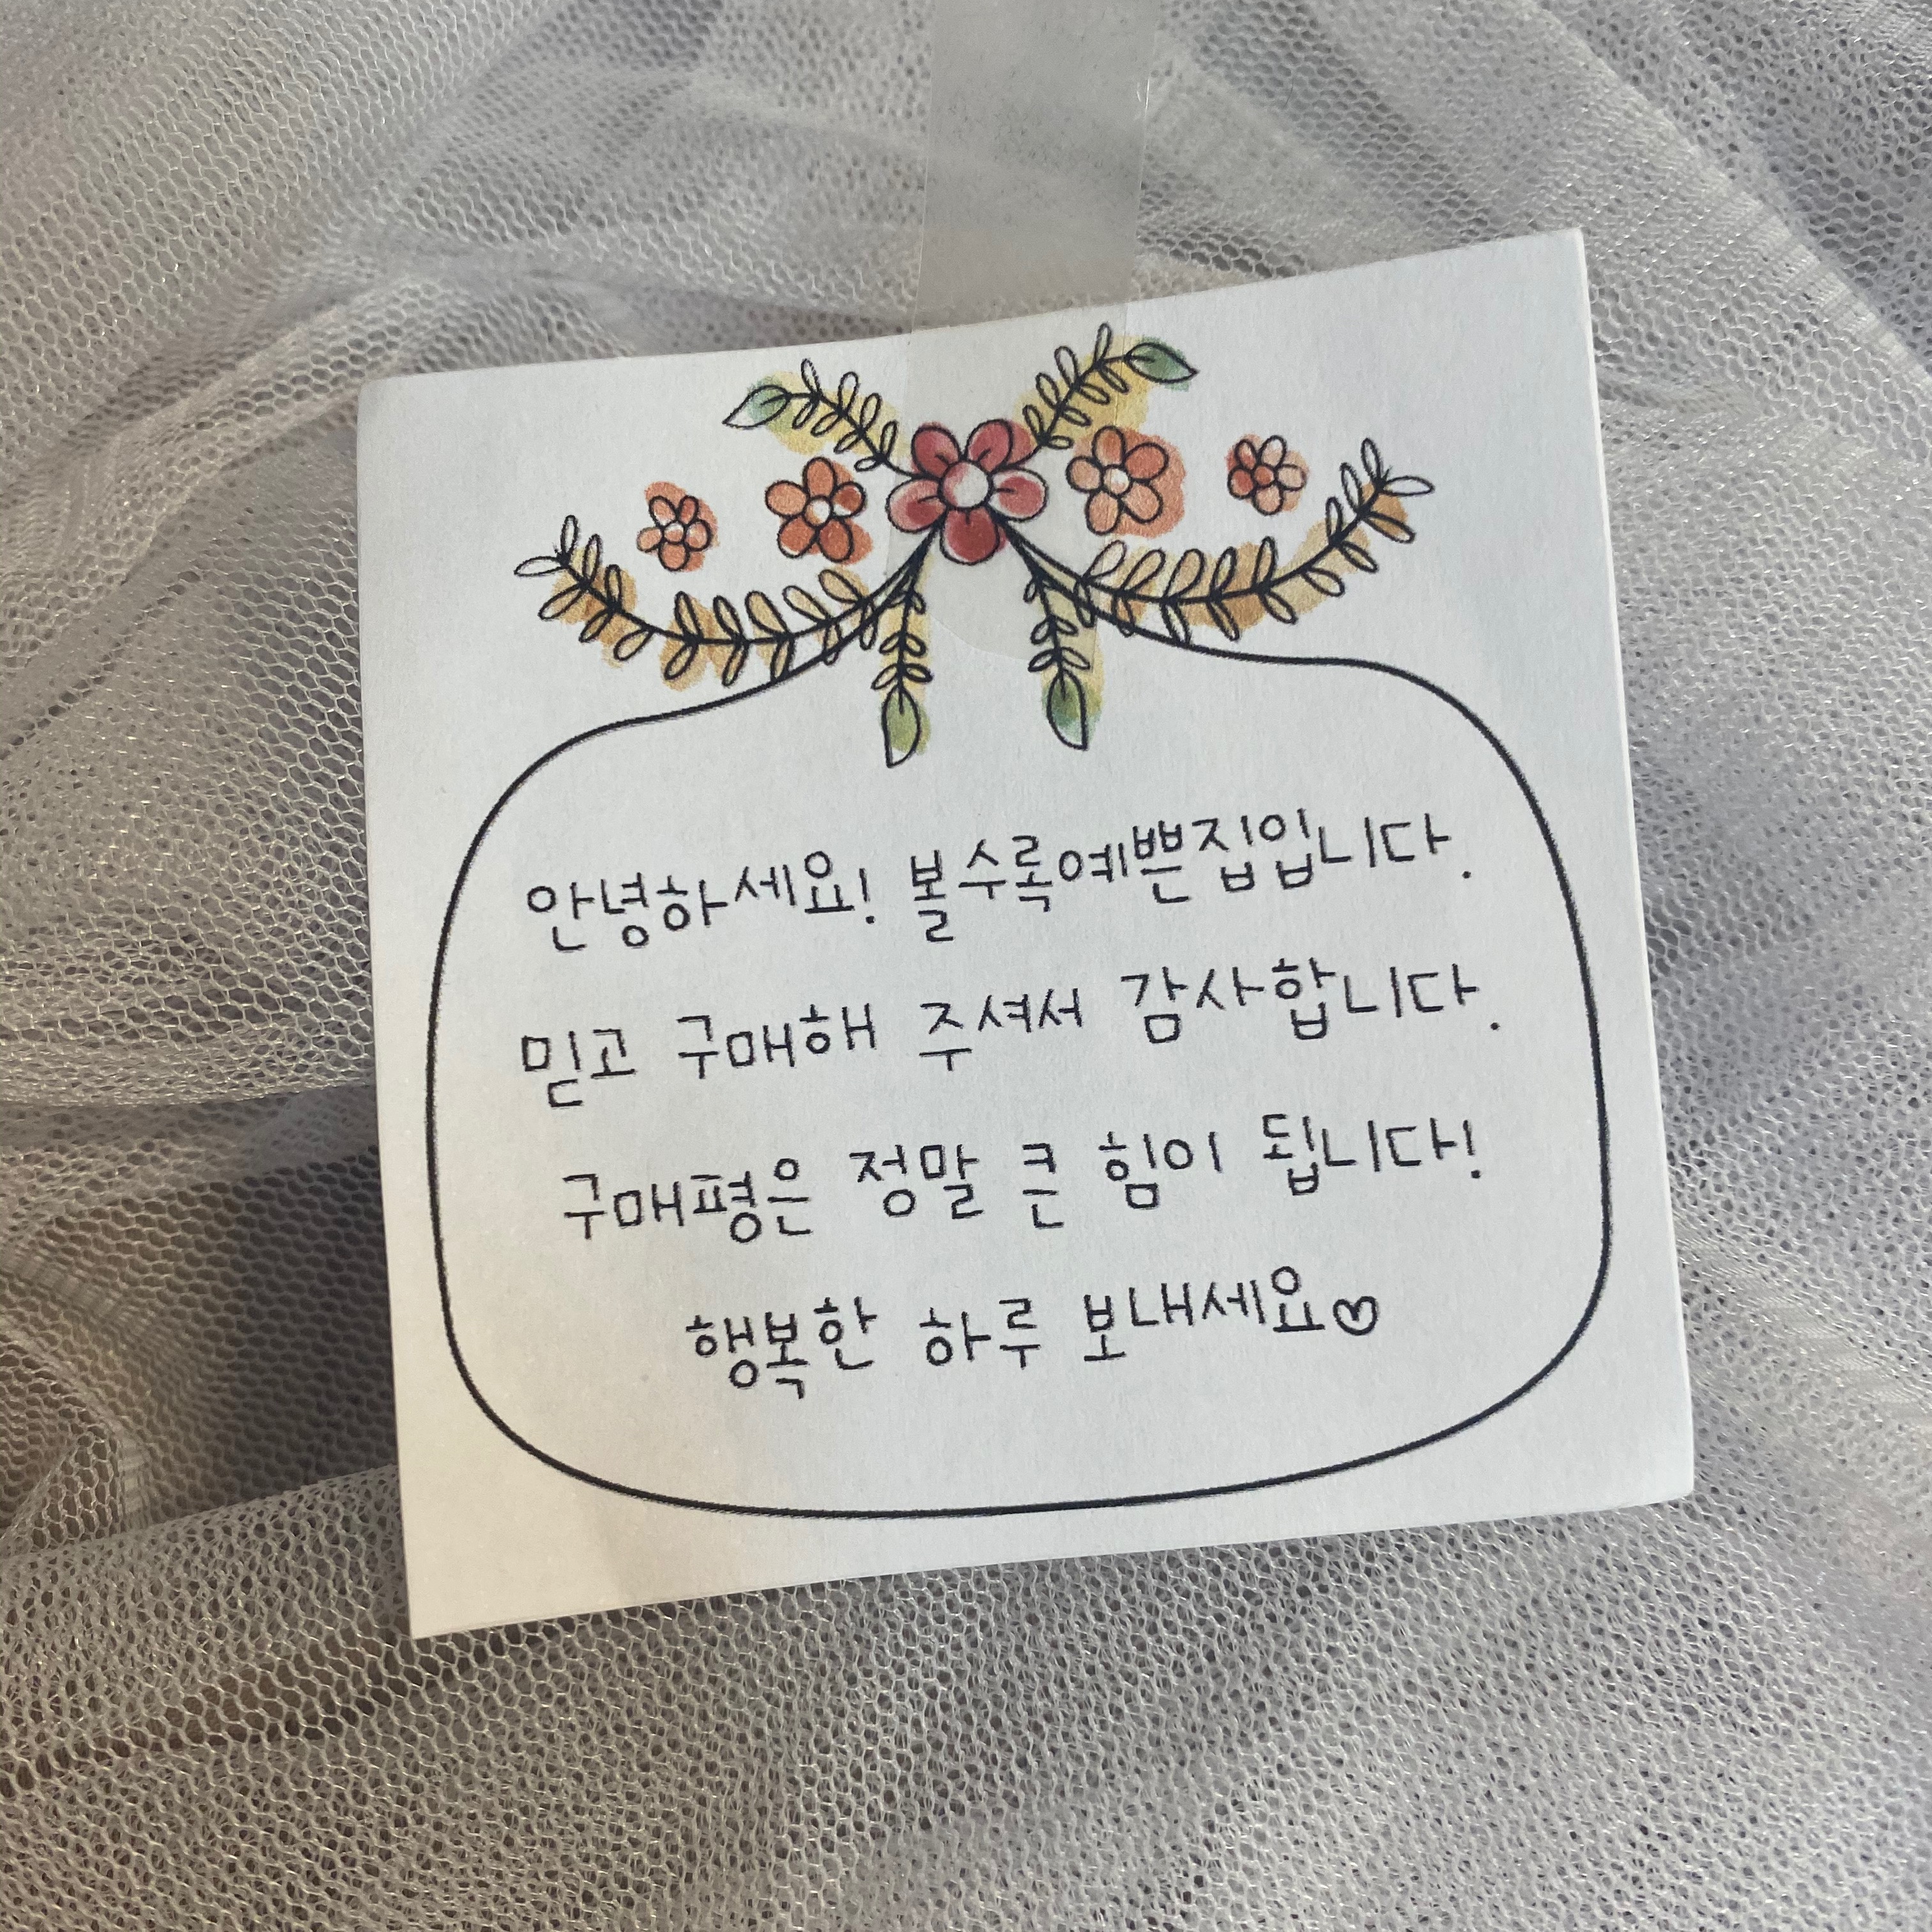 안녕하세요! 볼수록예쁜집입니다.
믿고 구매해 주셔서 감사합니다.
구매평은 정말 큰 힘이 됩니다!
행복한 하루 보내세요♡